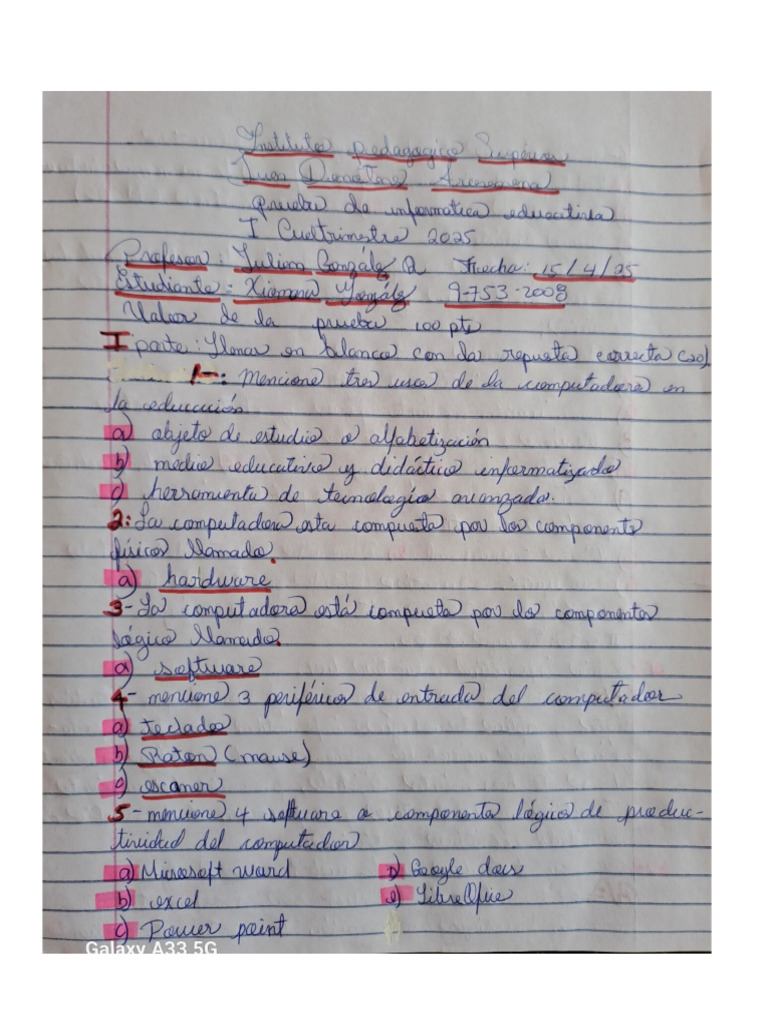 Instituto pedagogico Superior
Juan Demóstene Arosemena
Prueba de informática educativa
I Cuatrimestre 2025
Profesor: Julian González Q Fecha: 15/4/25
Estudiante: Xiomara González 9-753-2008
Valor de la prueba 100 pts
I parte: Llenar en blanco con la repuesta correcta (20).
1-: Mencione tres usos de la computadora en
la educación
a) objeto de estudio o alfabetización
b) medio educativo y didáctico informatizado
c) herramienta de tecnología avanzada.
2: La computadora esta compuesta por los componente
físicos llamado.
a) hardware
3- La computadora está compuesta por lo componentes
lógico llamado.
a) software
4- mencione 3 periféricos de entrada del computador
a) teclado
b) Raton (mause)
c) escaner
5- mencione 4 software o componente lógico de produc-
tividad del computador
a) Microsoft Ward D) Google docs
b) excel e) LibreOffice
c) Power point
Galaxy A33 5G